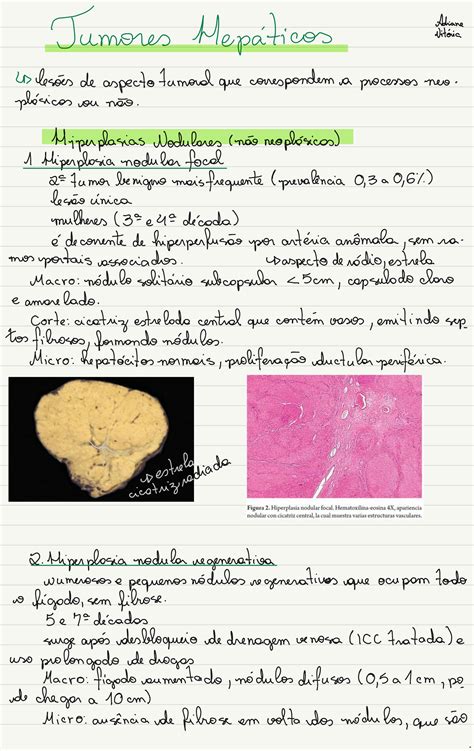 Tumores Hepáticos
Adriane
Vitória
↳ lesões de aspecto tumoral que correspondem a processos neo-
plásicos ou não.
Hiperplasias Nodulares (não neoplásicos)
1 Hiperplasia nodular focal
2º tumor benigno mais frequente (prevalência 0,3 a 0,6%)
lesão única
mulheres (3ª e 4ª década)
é decorrente de hiperperfusão por artéria anômala, sem ra-
mos portais associados. ↳ aspecto de rádio, estrela
Macro: nódulo solitário subcapsular < 5cm, capsulado claro
e amarelado.
Corte: cicatriz estrelada central que contém vasos, emitindo sep-
tos fibrosos, formando nódulos.
Micro: hepatócitos normais, proliferação ductular periférica.
↳ estrela
cicatriz radiada
Figura 2. Hiperplasia nodular focal. Hematoxilina-eosina 4X, apariencia
nodular con cicatriz central, la cual muestra varias estructuras vasculares.
2. Hiperplasia nodula regenerativa
numerosos e pequenos nódulos regenerativos que ocupam todo
o fígado, sem fibrose.
5 e 7ª décadas
surge após desbloqueio de drenagem venosa (ICC tratada) e
uso prolongado de drogas
Macro: fígado aumentado, nódulos difusos (0,5 a 1cm, po-
de chegar a 10cm)
Micro: ausência de fibrose em volta dos nódulos, que são